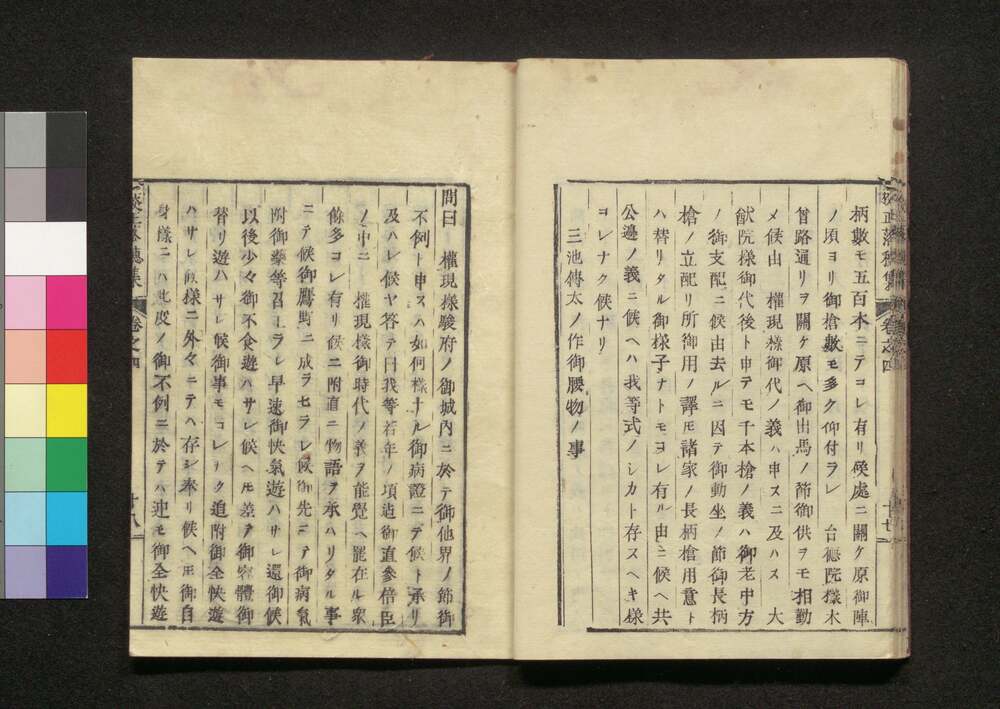 柄數モ五百本ニテコレ有リ候處ニ關ケ原御陣
ノ頃ヨリ御槍數モ多ク仰付ラレ　台德院樣木
曾路通リヲ關ケ原ヘ御出馬ノ節御供ヲモ相勤
メ候由　權現樣御代ノ義ハ申スニ及ハス　大
猷院樣御代後ト申テモ千本槍ノ義ハ御老中方
ノ御支配ニ候由去ルニ因テ御動坐ノ節御長柄
槍ノ立配リ所御用ノ譯モ諸家ノ長柄槍用意ト
ハ替リタル御樣子ナトモコレ有ル由ニ候ヘ共
公邊ノ義ニ候ヘハ我等式ノシカト存スヘキ樣
コレナク候ナリ
三池傳太ノ作御腰物ノ事
卷之四
十七
問曰　權現樣駿府ノ御城內ニ於テ御他界ノ節御
不例ト申スハ如何樣ナル御病證ニテ候ト承リ
及ハレ候ヤ答テ曰我等若年ノ項迠御直參倍臣
ノ中ニ　權現樣御時代ノ義ヲ能覺ヘ罷在ル衆
餘多コレ有リ候ニ附直ニ物語ヲ承ハリタル事
ニテ候御鷹野ニ成ラセラレ候御先ニテ御病氣
附御藥等召上ラレ早速御快氣遊ハサレ還御候
以後少々御不食遊ハサレ候ヘモ差テ御容體御
替リ遊ハサレ候御事モコレナク追附御全快遊
ハサレ候樣ニ外々ニテハ存シ奉リ候ヘモ御自
身樣ニハ此度ノ御不例ニ於テハ迚モ御全快遊
卷之四
十八